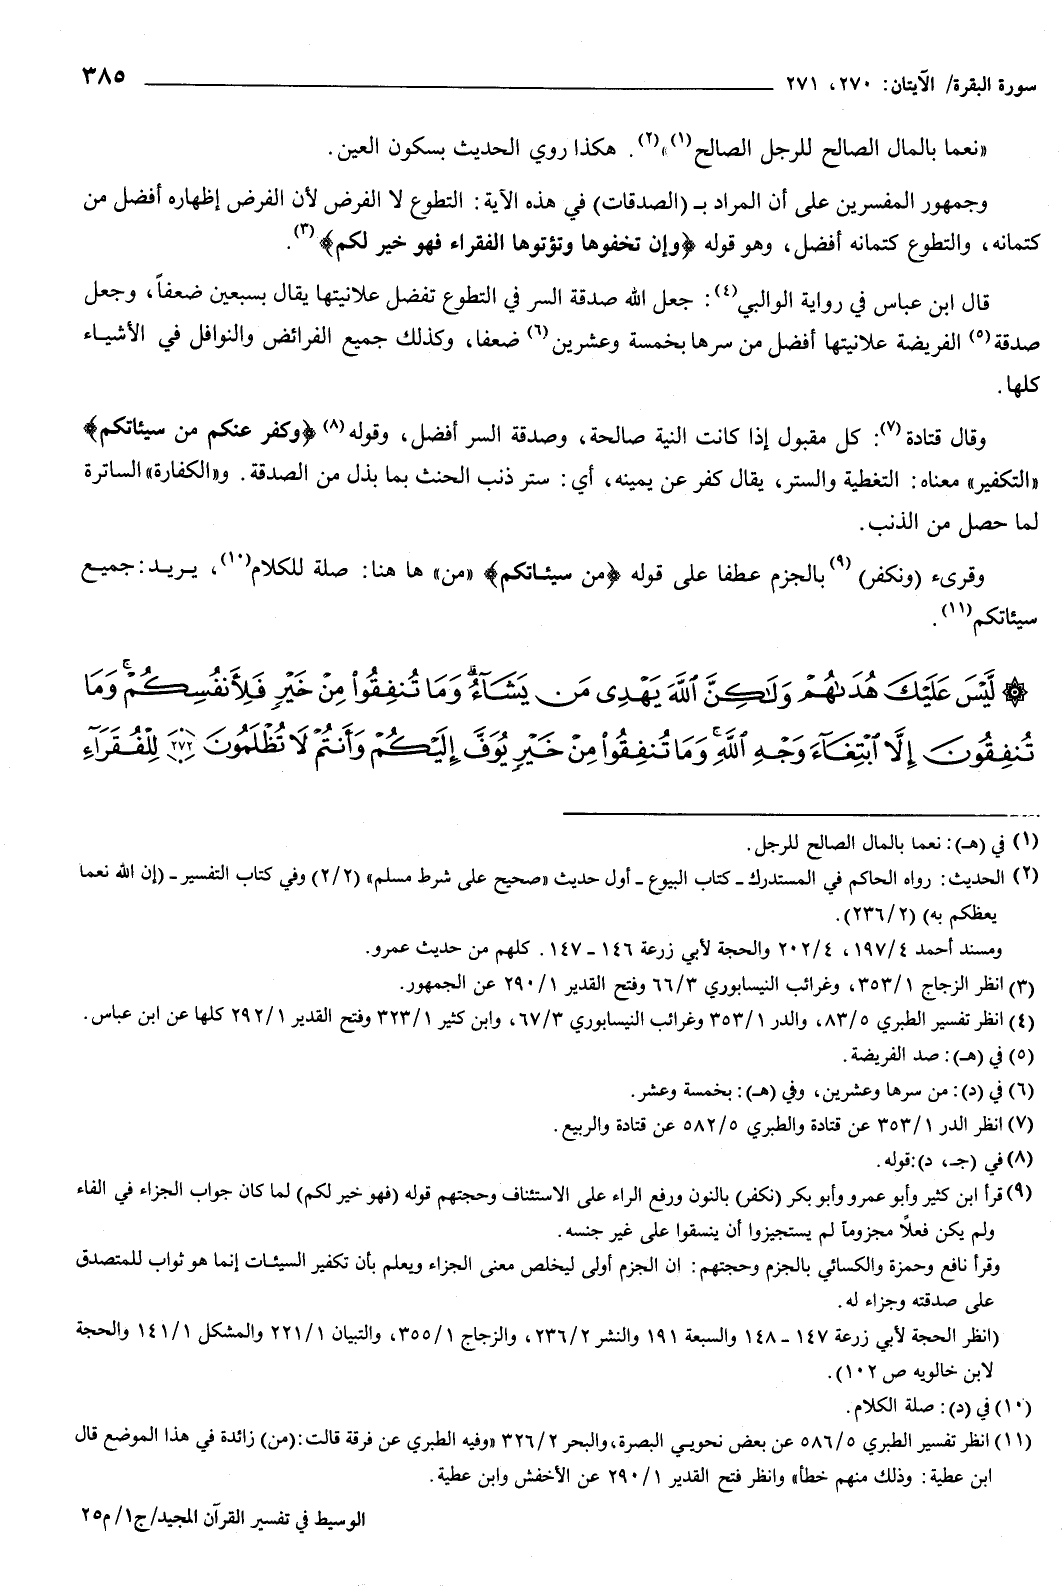 سورة البقرة/ الآيتان: ٢٧٠، ٢٧١ ٣٨٥
«نعما بالمال الصالح للرجل الصالح(١)»(٢). هكذا روي الحديث بسكون العين.
وجمهور المفسرين على أن المراد بـ (الصدقات) في هذه الآية: التطوع لا الفرض لأن الفرض إظهاره أفضل من
كتمانه، والتطوع كتمانه أفضل، وهو قوله ﴿وإن تخفوها وتؤتوها الفقراء فهو خير لكم﴾(٣).
قال ابن عباس في رواية الوالبي(٤): جعل الله صدقة السر في التطوع تفضل علانيتها يقال بسبعين ضعفاً، وجعل
صدقة(٥) الفريضة علانيتها أفضل من سرها بخمسة وعشرين(٦) ضعفا، وكذلك جميع الفرائض والنوافل في الأشياء
كلها.
وقال قتادة(٧): كل مقبول إذا كانت النية صالحة، وصدقة السر أفضل، وقوله(٨) ﴿وكفر عنكم من سيئاتكم﴾
«التكفير» معناه: التغطية والستر، يقال كفر عن يمينه، أي: ستر ذنب الحنث بما بذل من الصدقة. و«الكفارة» الساترة
لما حصل من الذنب.
وقرىء (ونكفر)(٩) بالجزم عطفا على قوله ﴿من سيئاتكم﴾ «من» ها هنا: صلة للكلام(١٠)، يريد: جميع
سيئاتكم(١١).
۞ لَّيْسَ عَلَيْكَ هُدَىٰهُمْ وَلَٰكِنَّ ٱللَّهَ يَهْدِى مَن يَشَآءُ ۗ وَمَا تُنفِقُوا۟ مِنْ خَيْرٍ فَلِأَنفُسِكُمْ ۚ وَمَا
تُنفِقُونَ إِلَّا ٱبْتِغَآءَ وَجْهِ ٱللَّهِ ۚ وَمَا تُنفِقُوا۟ مِنْ خَيْرٍ يُوَفَّ إِلَيْكُمْ وَأَنتُمْ لَا تُظْلَمُونَ ﴿٢٧٢﴾ لِلْفُقَرَآءِ
(١) في (هـ): نعما بالمال الصالح للرجل.
(٢) الحديث: رواه الحاكم في المستدرك - كتاب البيوع - أول حديث «صحيح على شرط مسلم» (٢/٢) وفي كتاب التفسير - (إن الله نعما
يعظكم به) (٢٣٦/٢).
ومسند أحمد ١٩٧/٤، ٢٠٢/٤ والحجة لأبي زرعة ١٤٦ - ١٤٧. كلهم من حديث عمرو.
(٣) انظر الزجاج ٣٥٣/١، وغرائب النيسابوري ٦٦/٣ وفتح القدير ٢٩٠/١ عن الجمهور.
(٤) انظر تفسير الطبري ٨٣/٥، والدر ٣٥٣/١ وغرائب النيسابوري ٦٧/٣، وابن كثير ٣٢٣/١ وفتح القدير ٢٩٢/١ كلها عن ابن عباس.
(٥) في (هـ): صد الفريضة.
(٦) في (د): من سرها وعشرين، وفي (هـ): بخمسة وعشر.
(٧) انظر الدر ٣٥٣/١ عن قتادة والطبري ٥٨٢/٥ عن قتادة والربيع.
(٨) في (جـ، د): قوله.
(٩) قرأ ابن كثير وأبو عمرو وأبو بكر (نكفر) بالنون ورفع الراء على الاستئناف وحجتهم قوله (فهو خير لكم) لما كان جواب الجزاء في الفاء
ولم يكن فعلاً مجزوماً لم يستجيزوا أن ينسقوا على غير جنسه.
وقرأ نافع وحمزة والكسائي بالجزم وحجتهم: ان الجزم أولى ليخلص معنى الجزاء ويعلم بأن تكفير السيئات إنما هو ثواب للمتصدق
على صدقته وجزاء له.
(انظر الحجة لأبي زرعة ١٤٧ - ١٤٨ والسبعة ١٩١ والنشر ٢٣٦/٢، والزجاج ٣٥٥/١، والتبيان ٢٢١/١ والمشكل ١٤١/١ والحجة
لابن خالويه ص ١٠٢).
(١٠) في (د): صلة الكلام.
(١١) انظر تفسير الطبري ٥٨٦/٥ عن بعض نحويي البصرة، والبحر ٣٢٦/٢ «وفيه الطبري عن فرقة قالت: (من) زائدة في هذا الموضع قال
ابن عطية: وذلك منهم خطأ» وانظر فتح القدير ٢٩٠/١ عن الأخفش وابن عطية.
الوسيط في تفسير القرآن المجيد/ج١/م٢٥